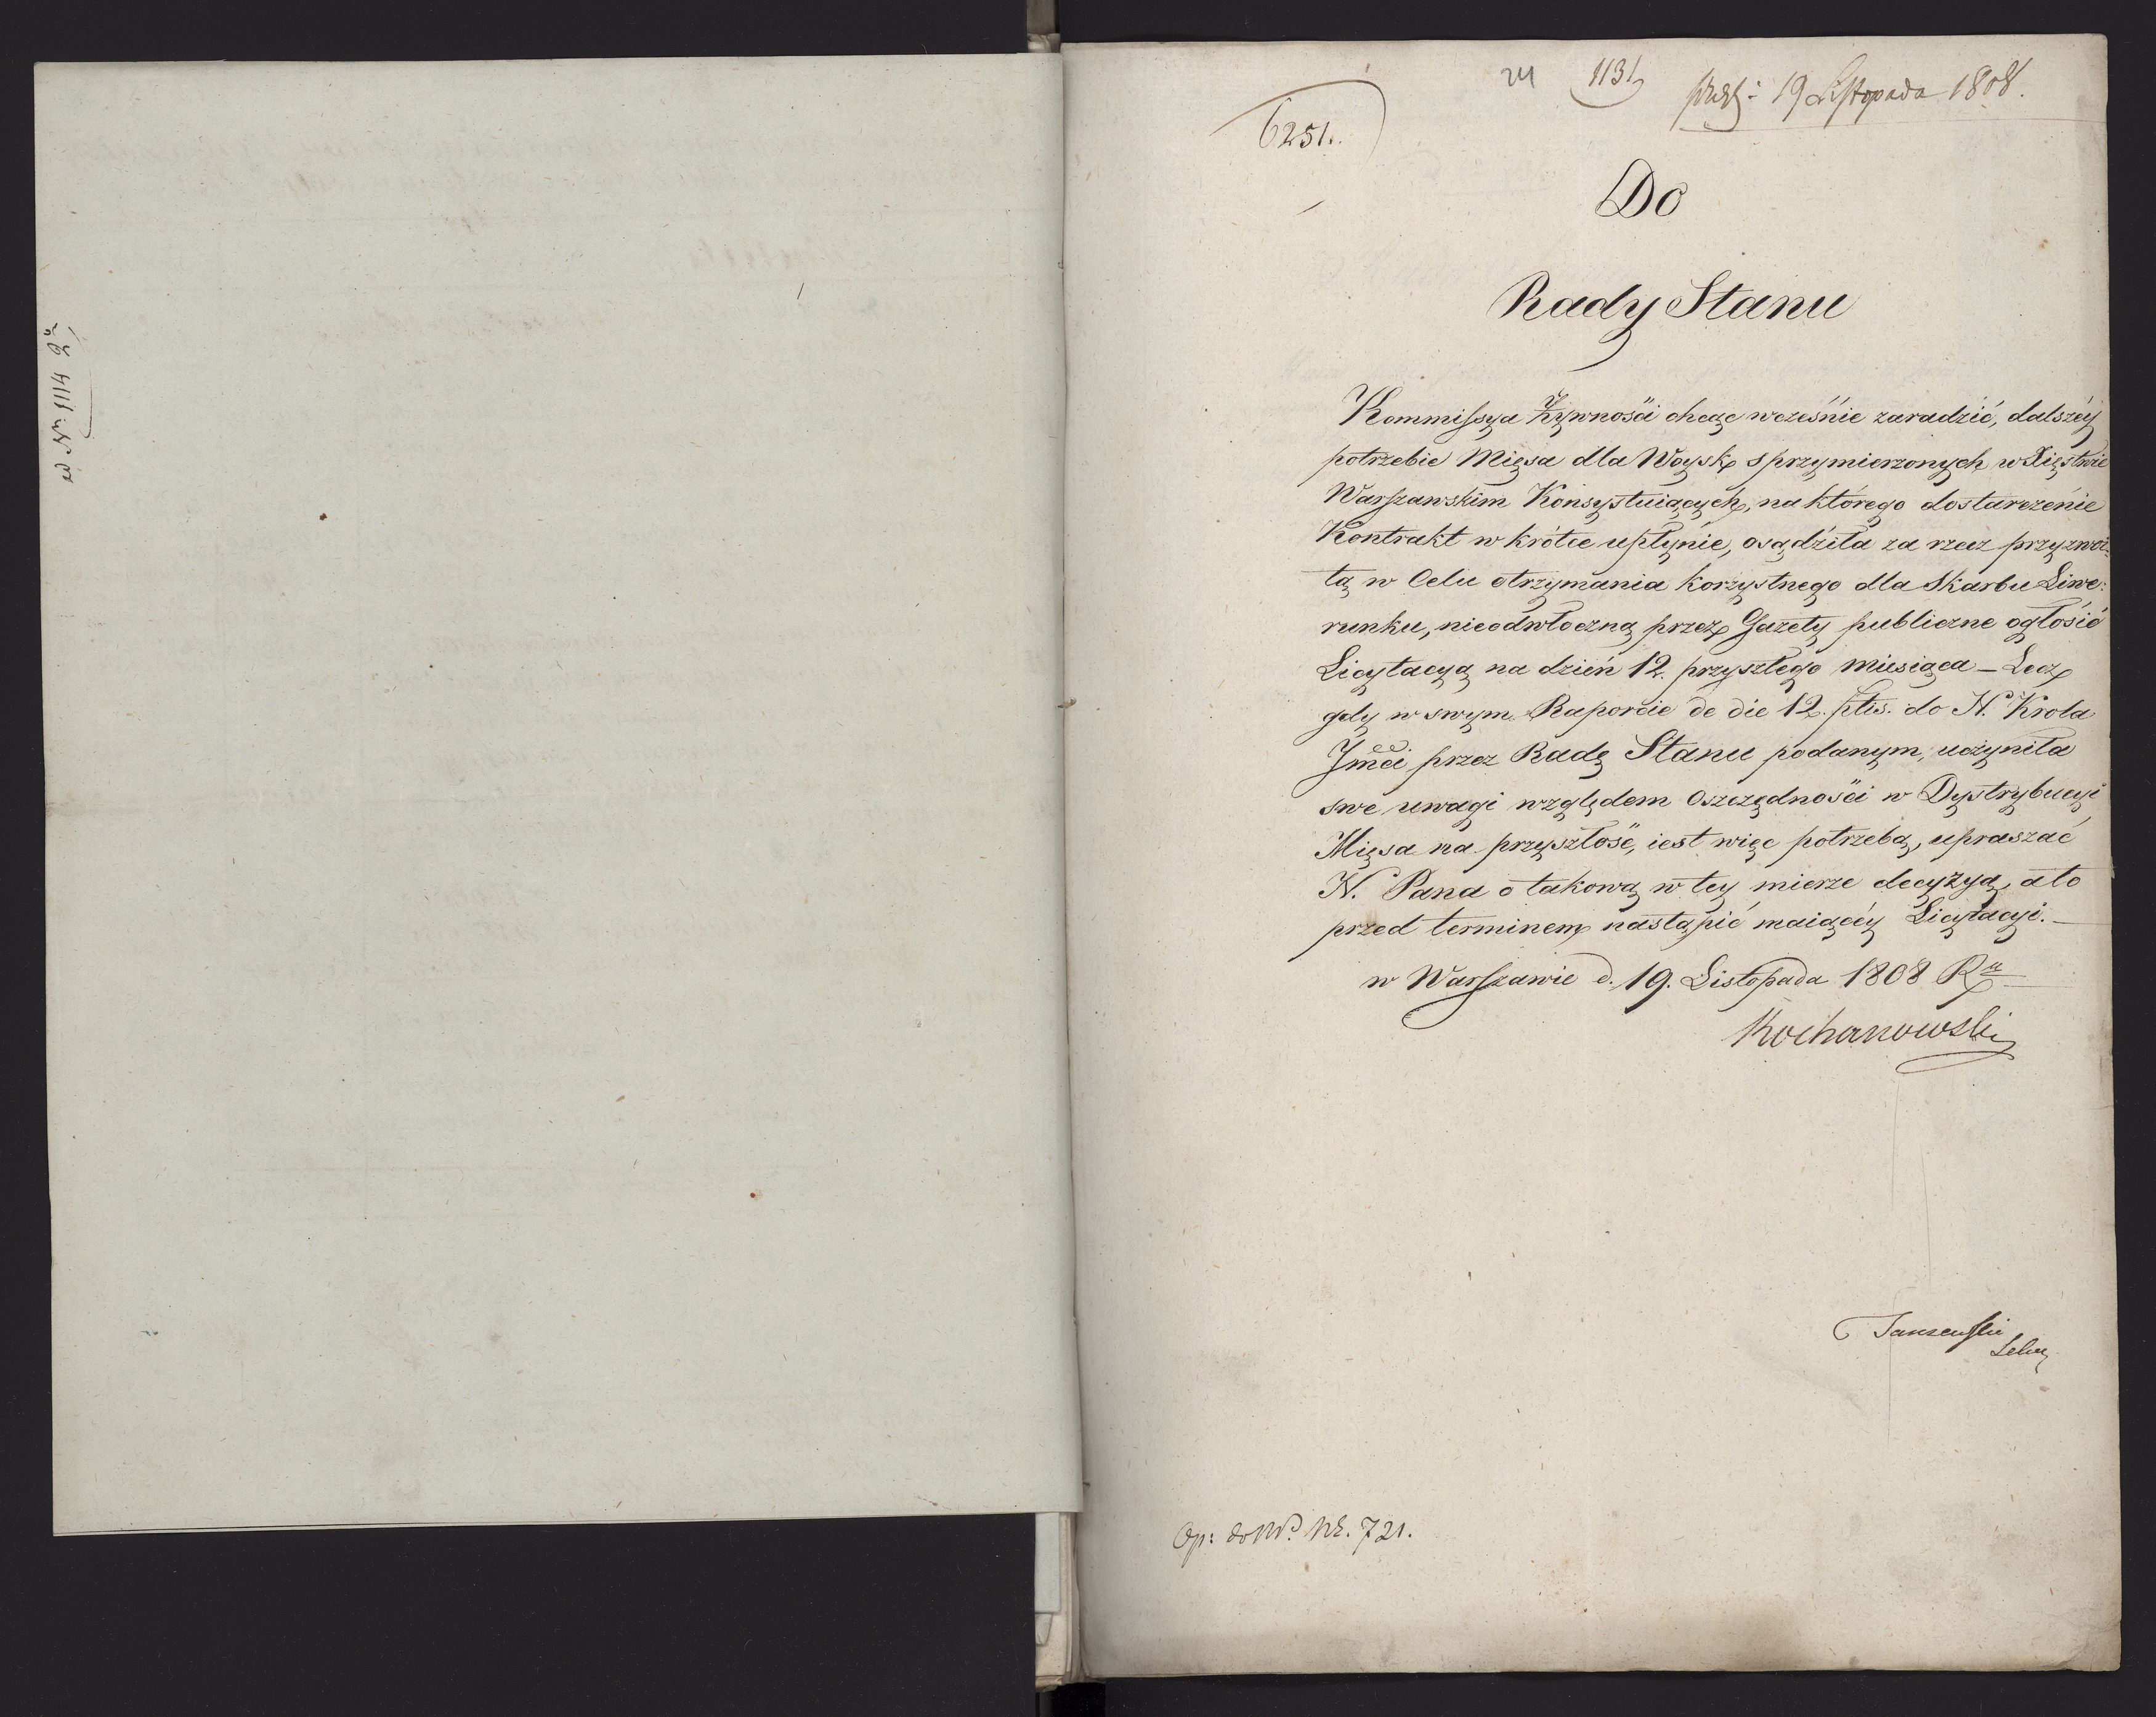 ad Nr: 1114 2°
24 1131
prast: 19 Listopada 1808.
6251.
Do
Rady Stanu
Kommissya Żywnośći chcąc wcześnie zaradzić, dalszéy
potrzebie Mięsa dla Woysk sprzymierzonych w Xięstwie
Warszawskim Konsystuiących, na którego dostarczénie
Kontrakt w krótce upłynie, osądziła za rzecz przyzwoi-
tą w Celu otrzymania korzystnego dla Skarbu Liwe-
runku, nieodwłoczną przez Gazety publiczne ogłosić
Licytacyą na dzień 12. przyszłego miesiąca – Lecz
gdy w swym Raporcie de die 12. ptis. do N. Krola
Jmći przez Radę Stanu podanym, uczyniła
swe uwagi względem Oszczędnośći w Dystrybucyi
Mięsa na przyszłość, iest więc potrzebą, upraszać
N. Pana o takową w tey mierze decyzyą, a to
przed terminem nastąpić maiącéy Licytacyi. –
w Warszawie d. 19. Listopada 1808 Ru
Kochanowski
Op: do Nr. 721.